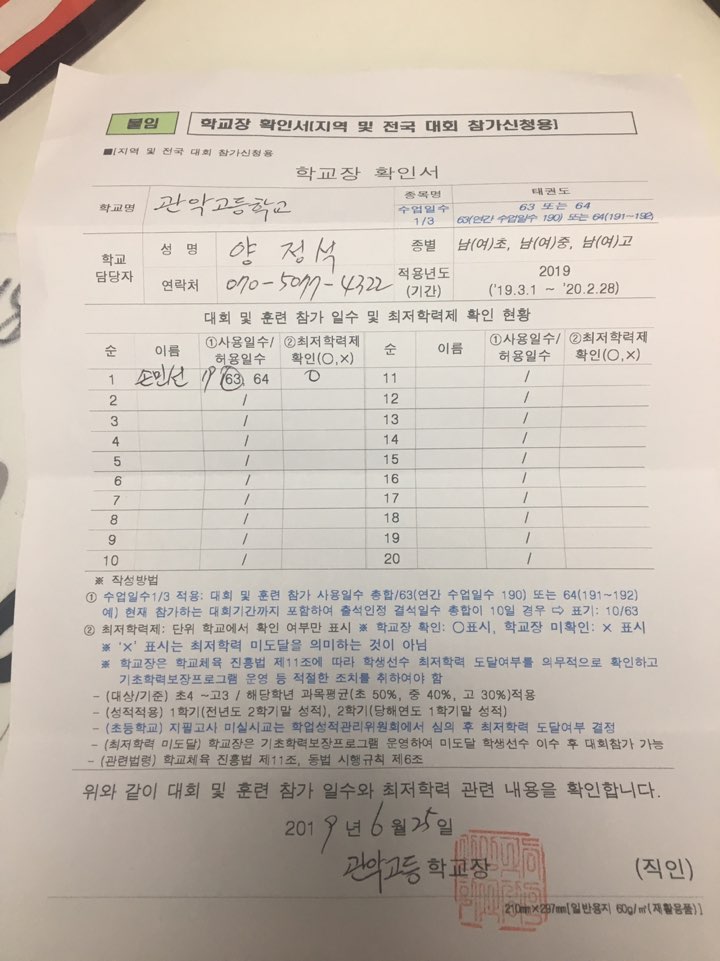 붙임 학교장 확인서[지역 및 전국 대회 참가신청용]
■[지역 및 전국 대회 참가신청용
학교장 확인서
학교명 관악고등학교 종목명 태권도
수업일수 1/3 63 또는 64
63(연간 수업일수 190) 또는 64(191~192)
학교 담당자 성 명 양 정 석 종별 남(여)초, 남(여)중, 남(여)고
연락처 070-5077-4322 적용년도 (기간) 2019 ('19.3.1 ~ '20.2.28)
대회 및 훈련 참가 일수 및 최저학력제 확인 현황
순 이름 ①사용일수/허용일수 ②최저학력제 확인(○,×) 순 이름 ①사용일수/허용일수 ②최저학력제 확인(○,×)
1 손민선 /63, 64 ○ 11 /
2 / 12 /
3 / 13 /
4 / 14 /
5 / 15 /
6 / 16 /
7 / 17 /
8 / 18 /
9 / 19 /
10 / 20 /
※ 작성방법
① 수업일수1/3 적용: 대회 및 훈련 참가 사용일수 총합/63(연간 수업일수 190) 또는 64(191~192)
예) 현재 참가하는 대회기간까지 포함하여 출석인정 결석일수 총합이 10일 경우 ⇨ 표기: 10/63
② 최저학력제: 단위 학교에서 확인 여부만 표시 ※ 학교장 확인: ○표시, 학교장 미확인: × 표시
※ '×' 표시는 최저학력 미도달을 의미하는 것이 아님
※ 학교장은 학교체육 진흥법 제11조에 따라 학생선수 최저학력 도달여부를 의무적으로 확인하고
기초학력보장프로그램 운영 등 적절한 조치를 취하여야 함
- (대상/기준) 초4 ~고3 / 해당학년 과목평균(초 50%, 중 40%, 고 30%)적용
- (성적적용) 1학기(전년도 2학기말 성적), 2학기(당해연도 1학기말 성적)
- (초등학교) 지필고사 미실시교는 학업성적관리위원회에서 심의 후 최저학력 도달여부 결정
- (최저학력 미도달) 학교장은 기초학력보장프로그램 운영하여 미도달 학생선수 이수 후 대회참가 가능
- (관련법령) 학교체육 진흥법 제11조, 동법 시행규칙 제6조
위와 같이 대회 및 훈련 참가 일수와 최저학력 관련 내용을 확인합니다.
2019년 6월 25일
관악고등 학교장 (직인)
210㎜×297㎜[일반용지 60g/㎡(재활용품)]